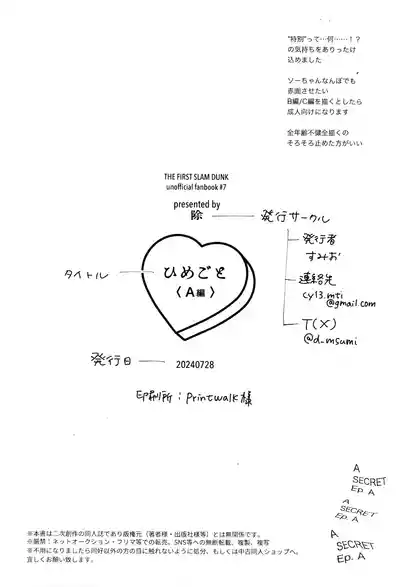 "特別"って…何……！？
の気持ちをありったけ
込めました
ソーちゃんなんぼでも
赤面させたい
B編/C編を描くとしたら
成人向けになります
全年齢不健全描くの
そろそろ止めた方がいい
THE FIRST SLAM DUNK
unofficial fanbook #7
presented by
除
発行サークル
発行者
すみお
連絡先
cy13.mti
@gmail.com
T(X)
@d_msumi
タイトル
ひめごと
〈A編〉
発行日
20240728
印刷所：Printwalk様
A
SECRET
EP. A
A
SECRET
EP. A
A
SECRET
EP. A
※本書は二次創作の同人誌であり版権元（著者様・出版社様等）とは無関係です。
※厳禁！ネットオークション・フリマ等での転売、SNS等への無断転載、複製、複写
※不用になりましたら同好以外の方の目に触れないように処分、もしくは中古同人ショップへ。
宜しくお願い致します。